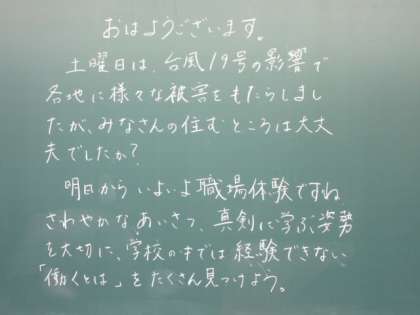 おはようございます。
土曜日は、台風19号の影響で
各地に様々な被害をもたらしまし
たが、みなさんの住むところは大丈
夫でしたか?
明日からいよいよ職場体験ですね
さわやかなあいさつ、真剣に学ぶ姿勢
を大切に、学校の中では経験できない
「働くとは」をたくさん見つけよう。